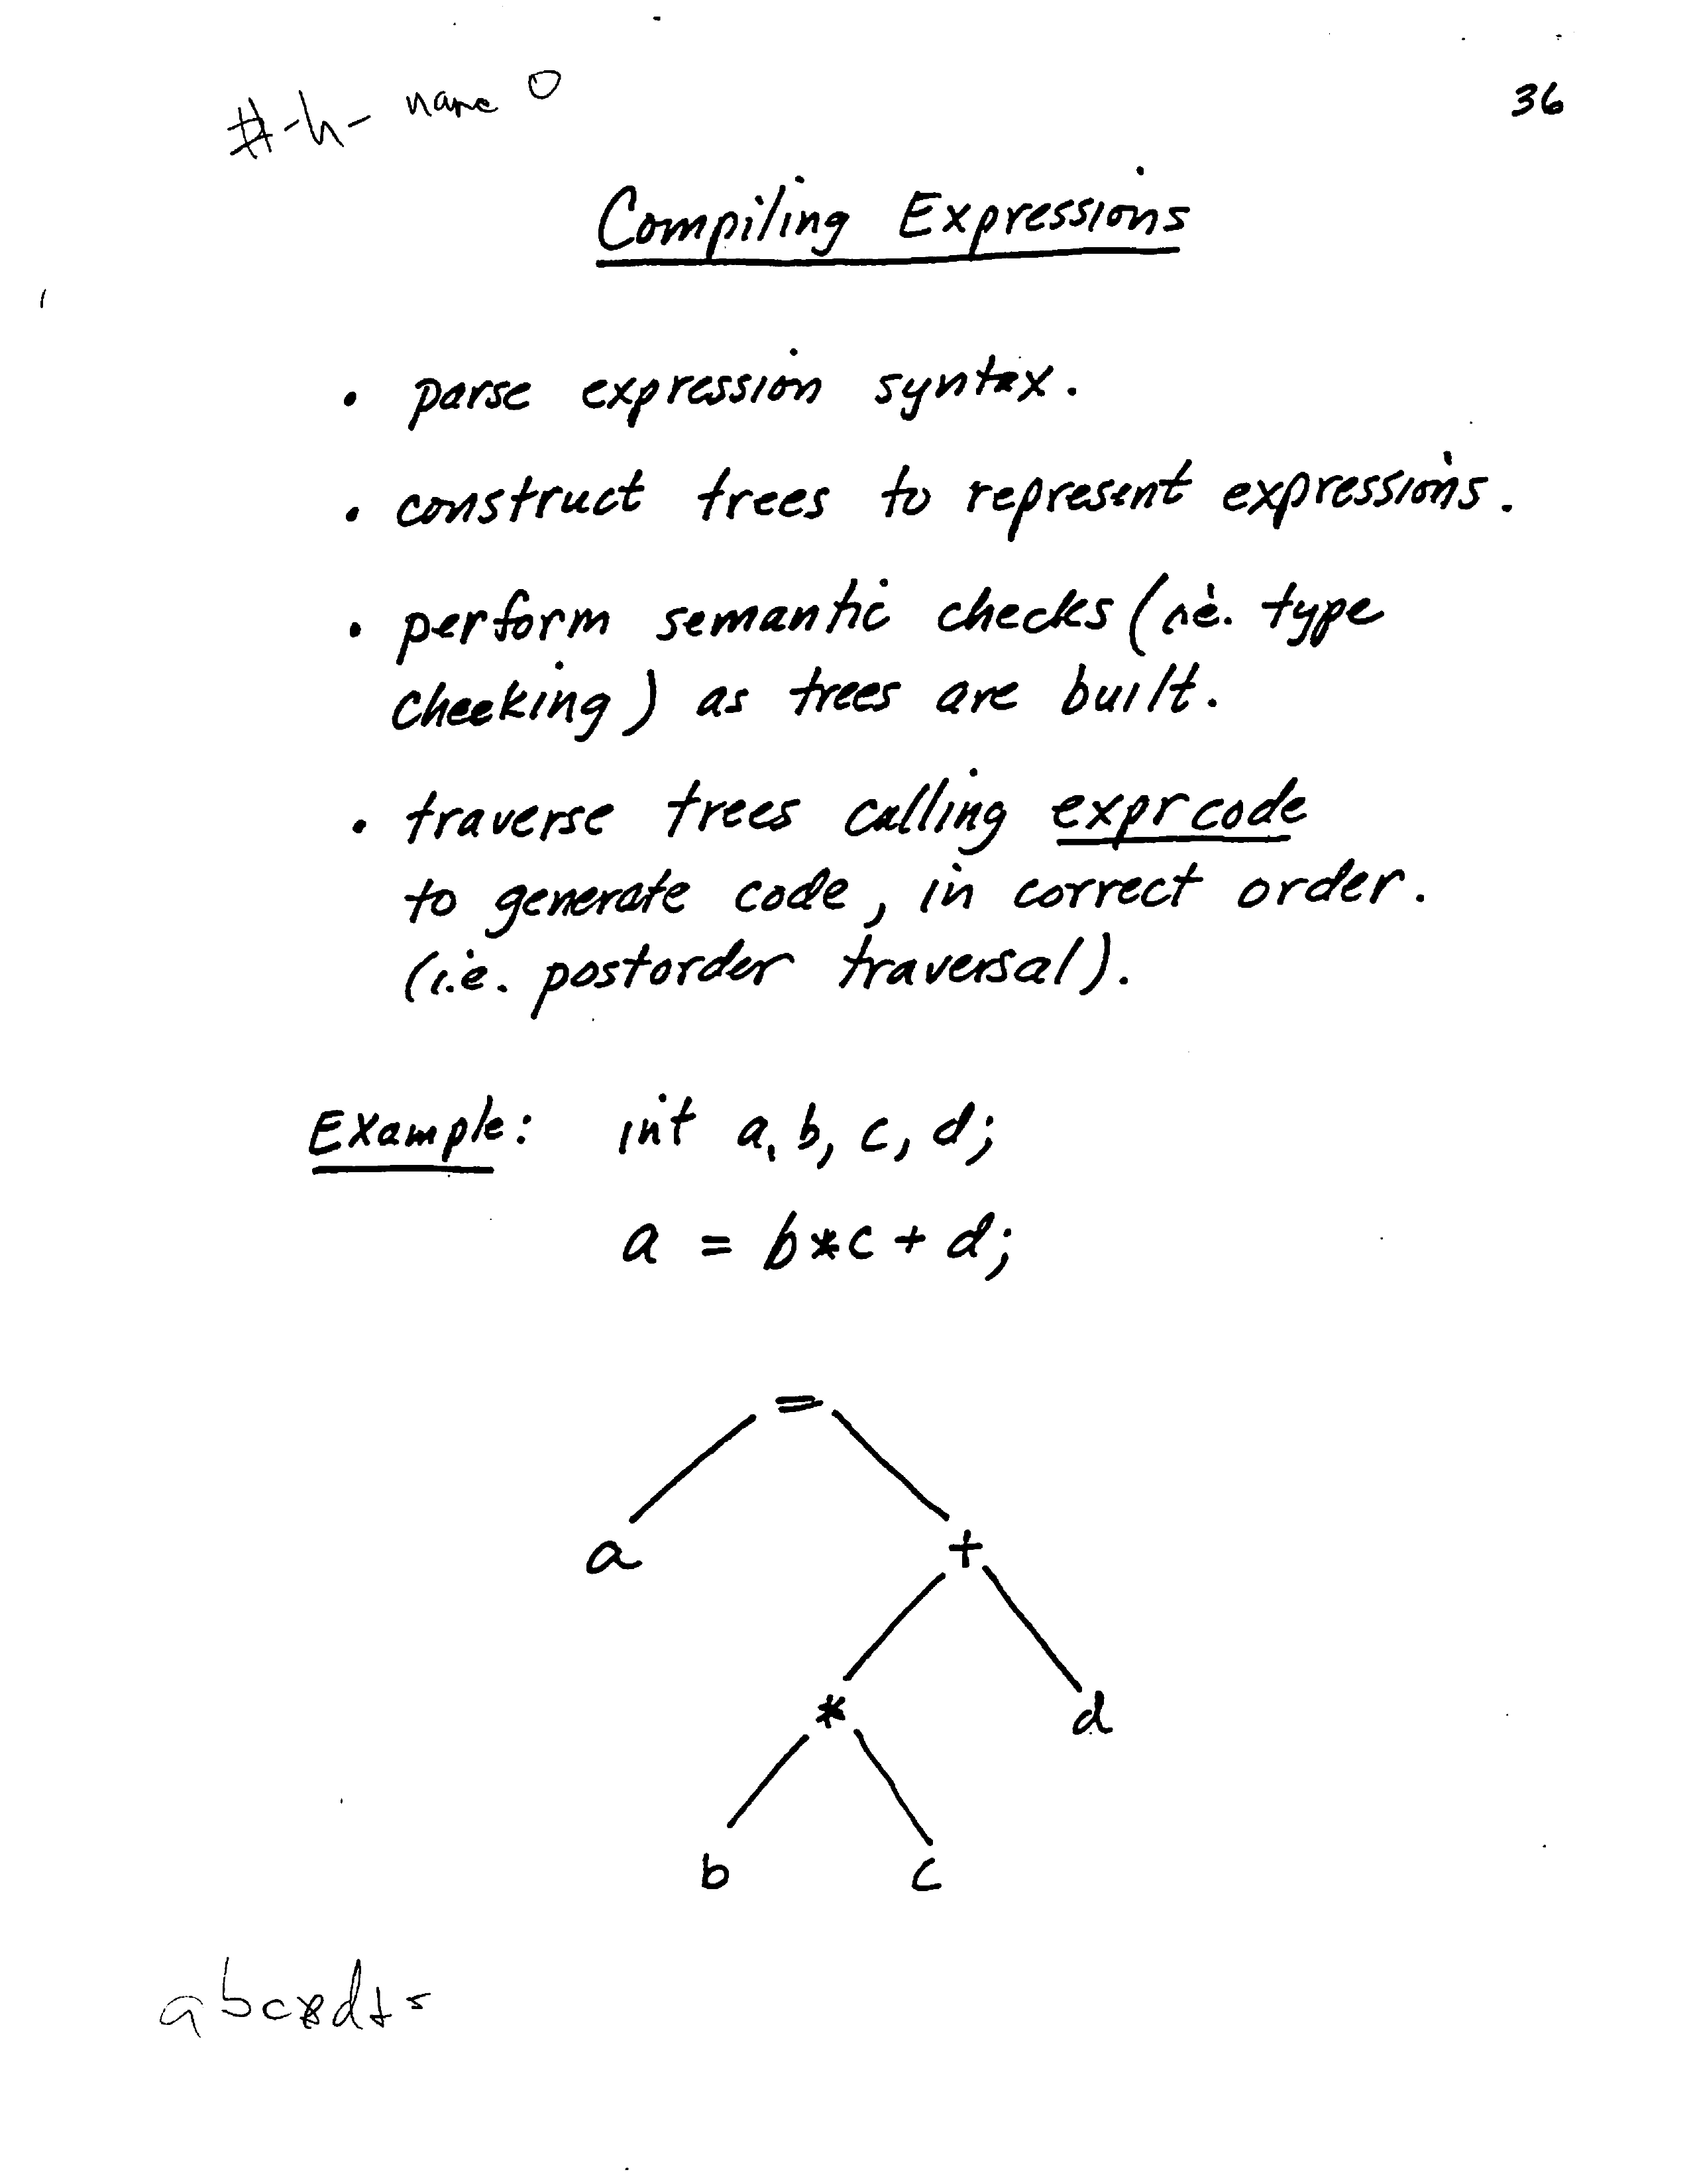 #-h- name 0
36
Compiling Expressions
• parse expression syntax.
• construct trees to represent expressions.
• perform semantic checks (i.e. type
checking) as trees are built.
• traverse trees calling exprcode
to generate code, in correct order.
(i.e. postorder traversal).
Example: int a, b, c, d;
a = b*c + d;
=
a
+
*
d
b
c
abc*d+=